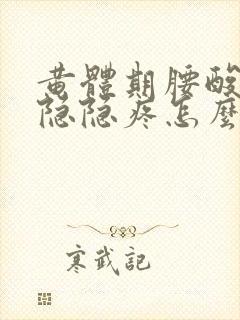 黄體期腰酸
隐隐疼怎麼
寒武記